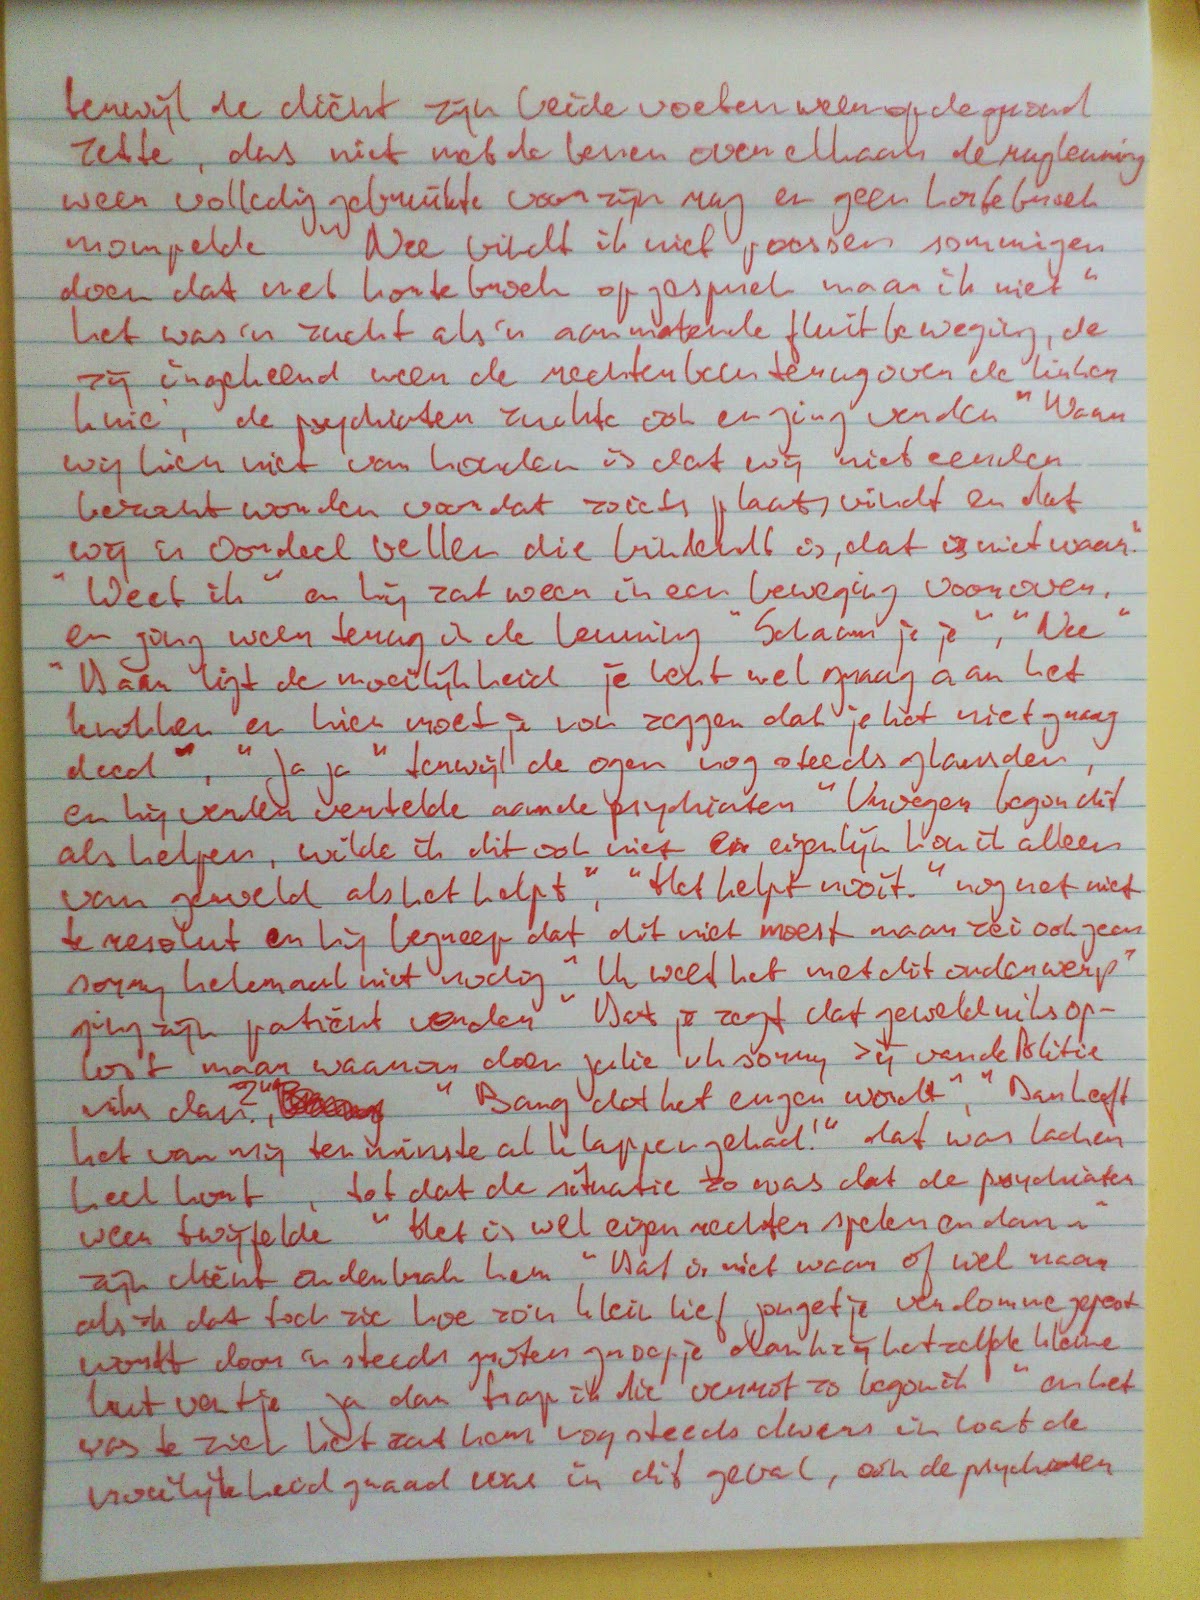 terwijl de cliënt zijn beide voeten weer op de grond
zette, dus niet met de benen over elkaar de rugleuning
weer volledig gebruikte voor zijn rug en geen korte broek
mompelde " Nee vindt ik niet passen sommigen
doen dat met korte broek op gesprek maar ik niet "
het was 'n zucht als 'n aanmatende fluitbeweging, de
zij ingekeerd weer de rechterbeen terug over de linker
knie, de psychiater zuchtte ook en ging verder " Waar
wij hier niet van houden is dat wij niet eerder
bezocht worden voordat zoiets plaatsvindt en dat
wij 'n oordeel vellen die bindendt is, dat is niet waar."
" Weet ik " en hij zat weer in een beweging voorover,
en ging weer terug in de leuning " Schaam je je ", " Nee "
" Daar ligt de moeilijkheid je bent wel graag aan het
knokken en hier moet je van zeggen dat je het niet graag
deed ", " Ja ja " terwijl de ogen nog steeds glansden,
en hij verder vertelde aan de psychiater " Vroeger begon dit
als helper, wilde ik dit ook niet en eigenlijk hou ik alleen
van geweld als het helpt ", " Het helpt nooit. " nog net niet
te resoluut en hij begreep dat dit niet moest maar zei ook geen
sorry helemaal niet nodig " Uh weet het met dit onderwerp "
ging zijn patiënt verder " Dat je zegt dat geweld niks op-
lost maar waarom doen julie uh sorry zij van de Politie
niks dan?", " Bang dat het erger wordt ", " Dan heeft
het van mij tenminste al klappen gehad! " dat was lachen
heel kort, totdat de situatie zo was dat de psychiater
weer twijfelde " Het is wel eigen rechter spelen en dan "
zijn cliënt onderbrak hem " Dat is niet waar of wel maar
als ik dat toch zie hoe zo'n klein lief jongetje verdomme gepest
wordt door 'n steeds groter groepje dankzij hetzelfde kleine
kut ventje ja dan trap ik die verrot zo begon ik " en het
was te zien het zat hem nog steeds dwars in wat de
moeilijkheidgraad was in dit geval, ook de psychiater